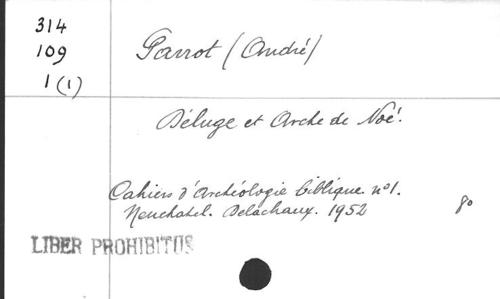 314
109
1 (1)
Parrot (André)
Déluge et Arche de Noé.
Cahiers d'Archéologie biblique. n° 1.
Neuchatel. Delachaux. 1952
8°
LIBER PROHIBITUS